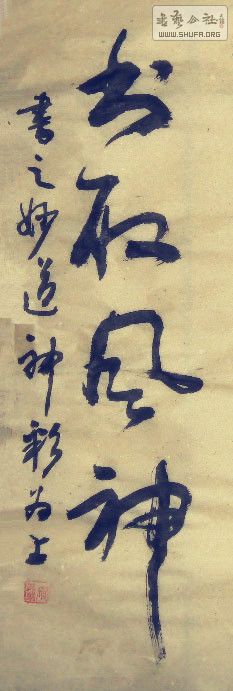 书取风神
書之妙道神彩为上
书艺公社
WWW.SHUFA.ORG